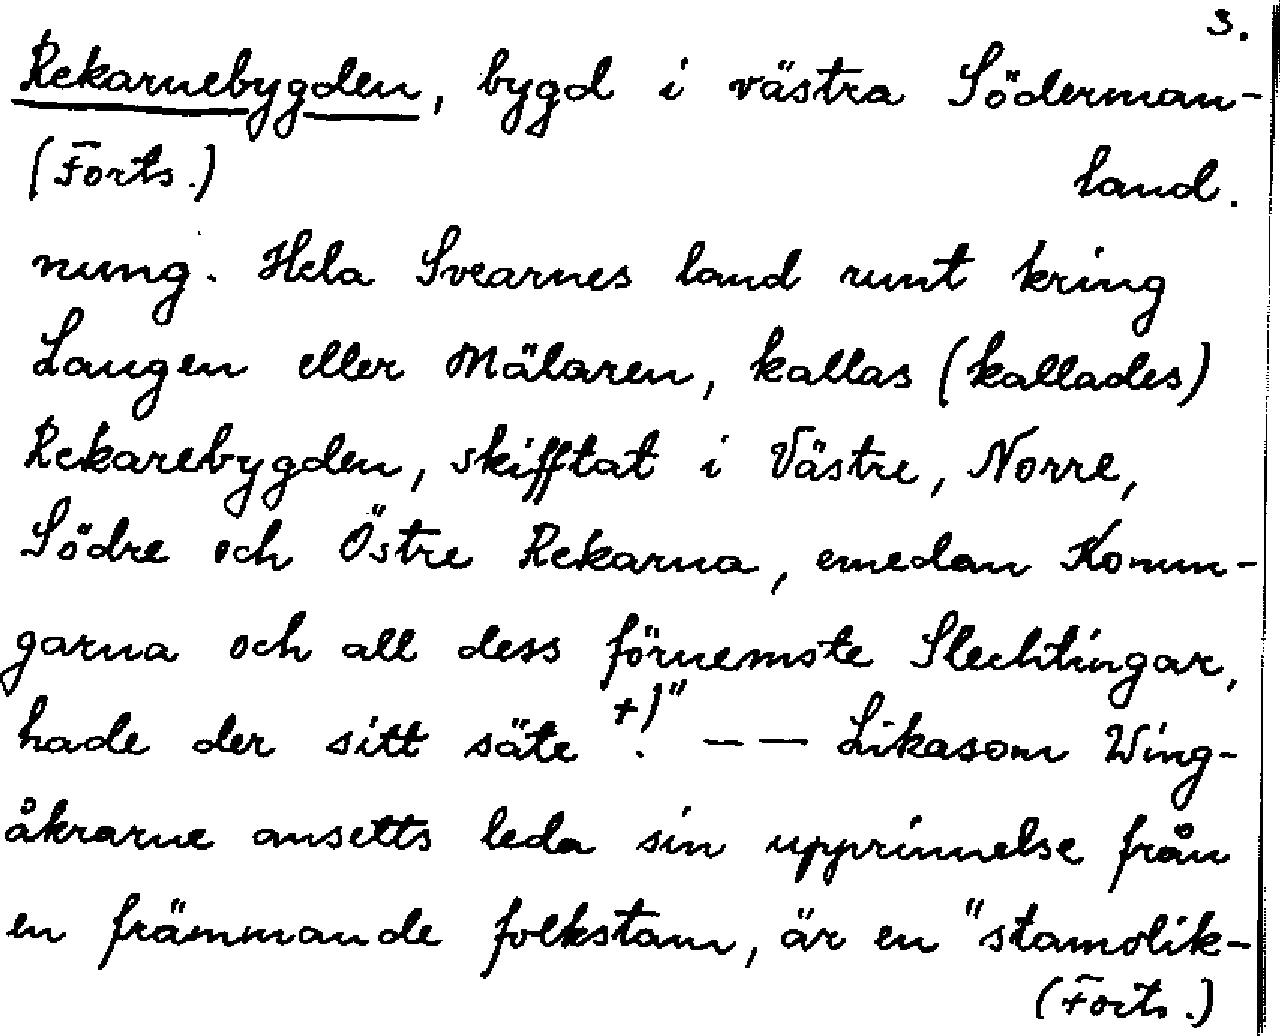 3.
Rekarnebygden, bygd i västra Söderman-
(Forts.) land.
nung. Hela Svearnes land runt kring
Laugen eller Mälaren, kallas (kallades)
Rekarebygden, skifftat i Västre, Norre,
Södre och Östre Rekarna, emedan Konun-
garna och all dess förnemste Slechtingar,
hade der sitt säte +)". –– Likasom Wing-
åkrarne ansetts leda sin upprinnelse från
en främmande folkstam, är en "stamolik-
(Forts.)